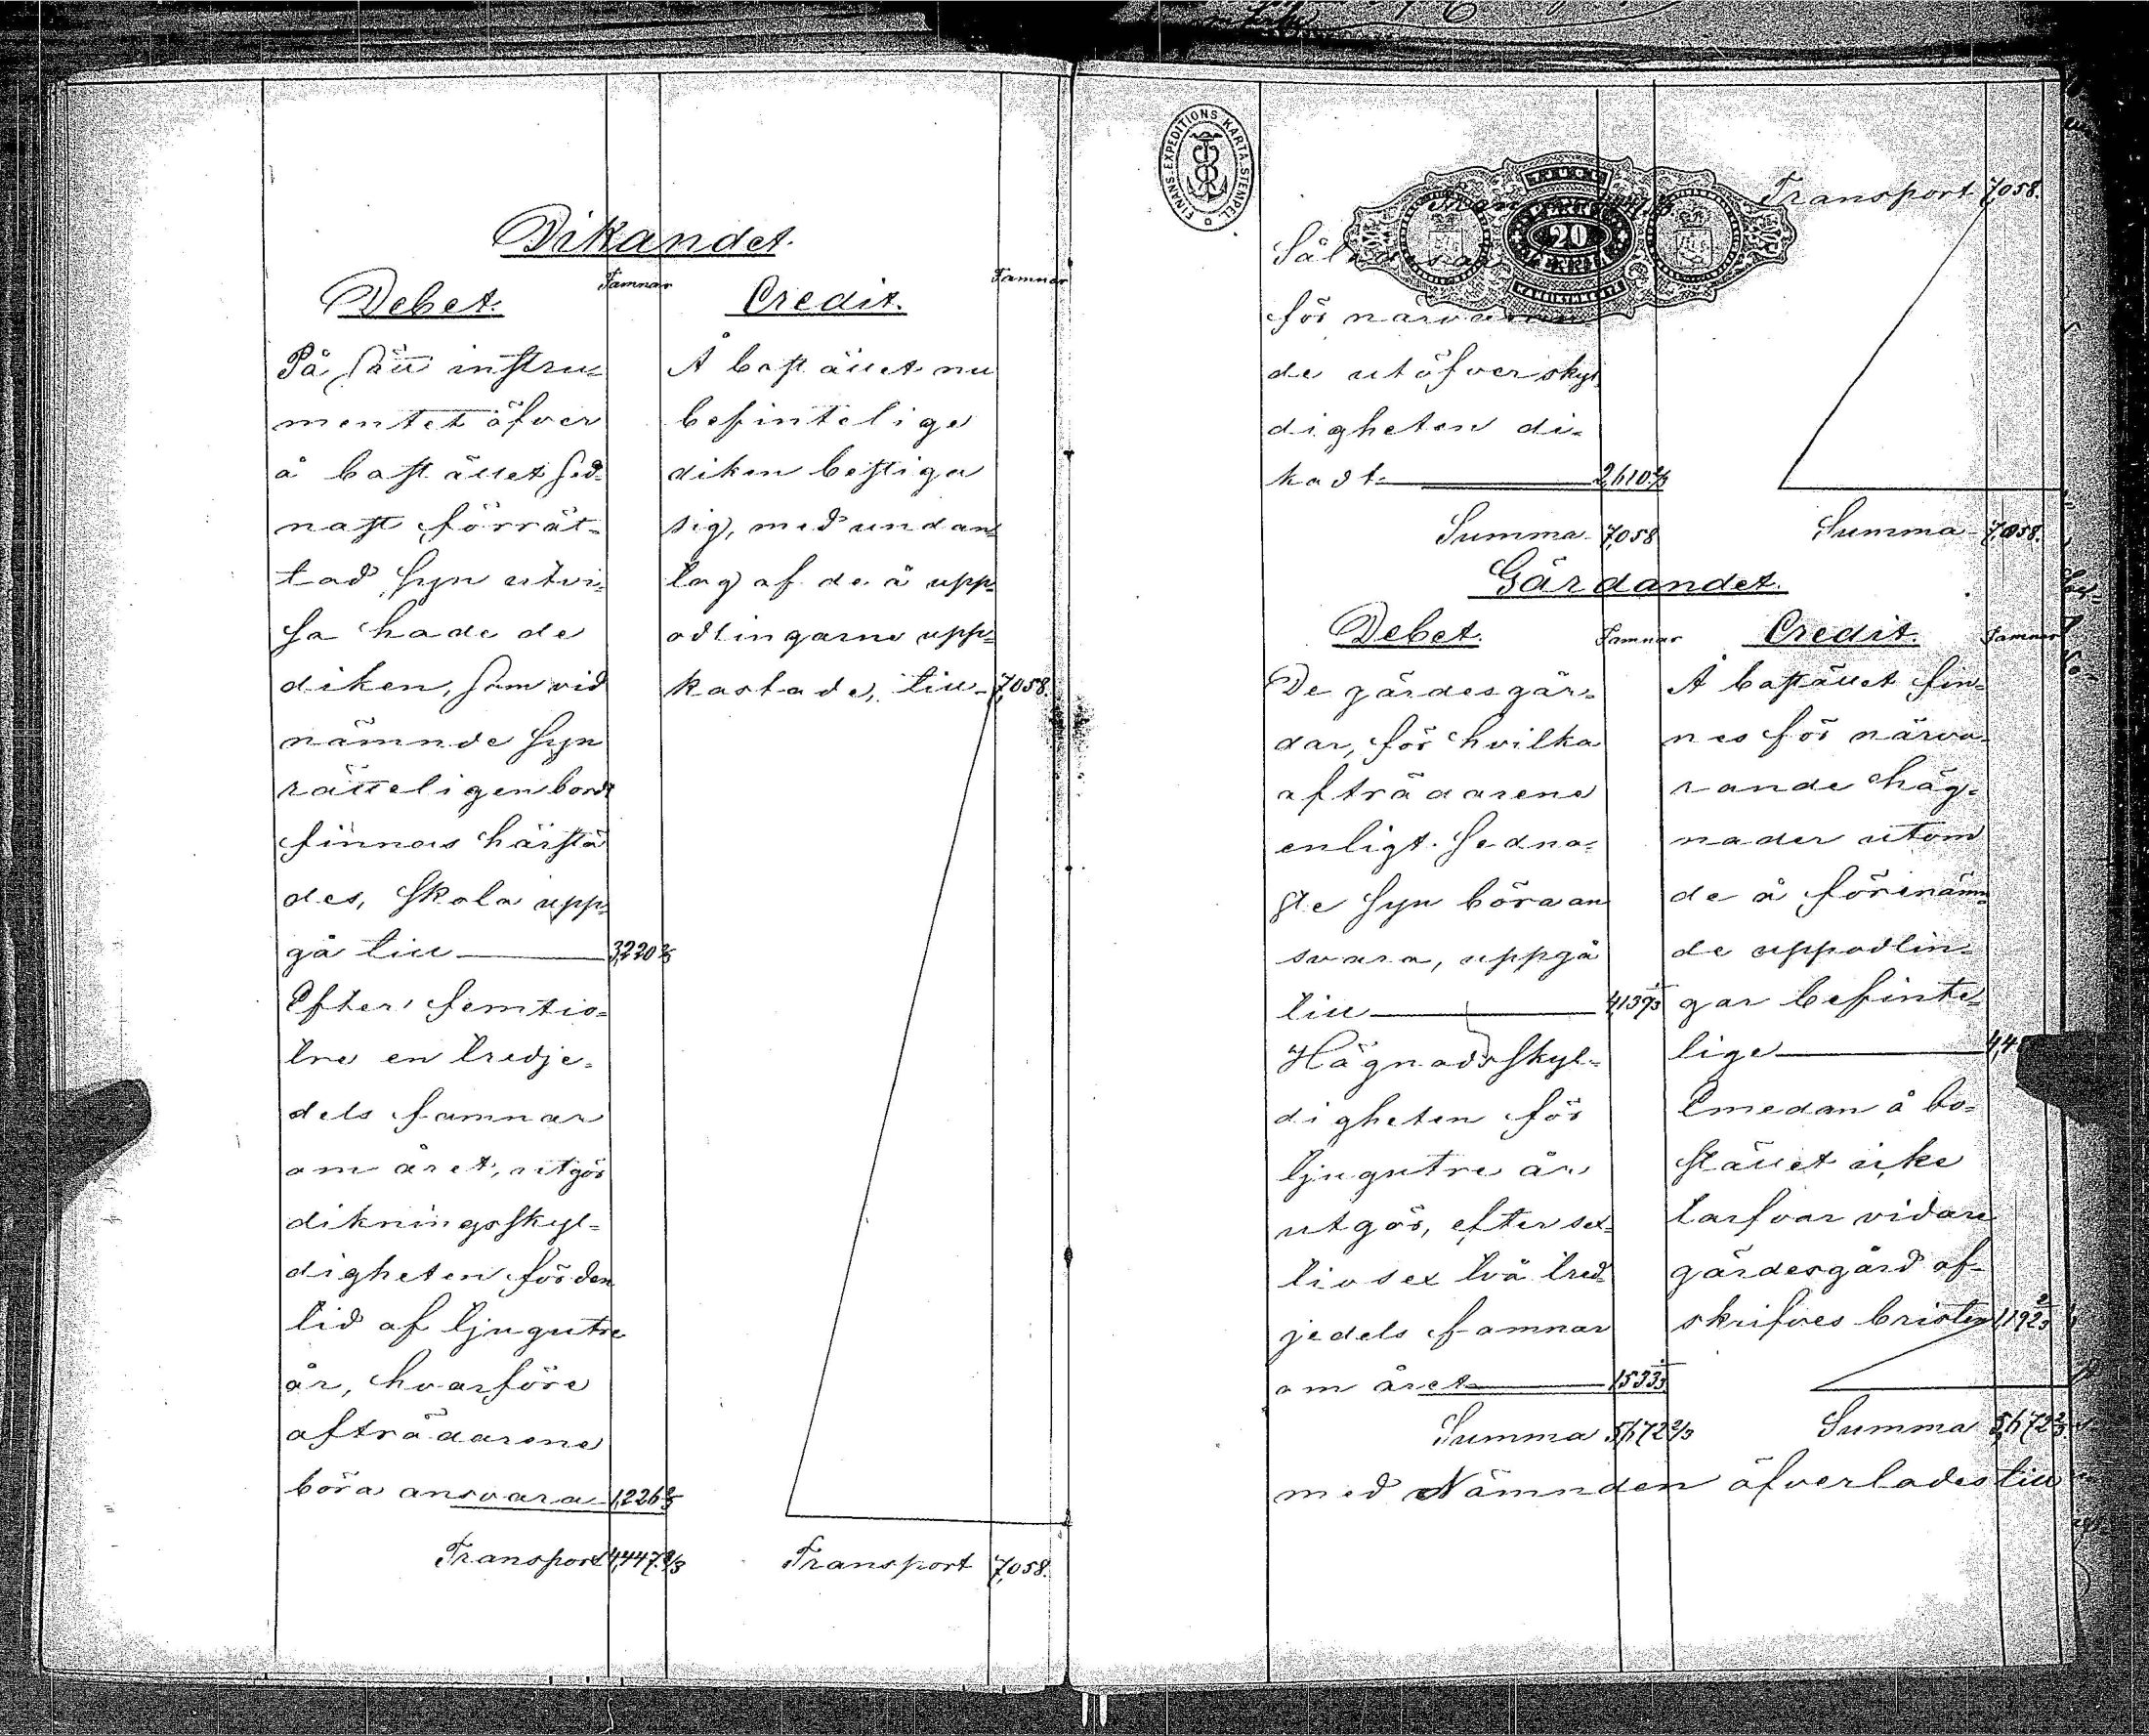 Dikandet.
Debet.
Famnar
På sätt instru-
mentet öfver
å bostället sed-
nast förrät-
tad syn utvi-
sa hade de
diken, som vid
nämnde syn
rätteligen bordt
finnas härstä
des, skola upp-
gå till 3,220 2/3
Efter femtio-
tre en tredje-
dels famnar
om året, utgör
dikningsskyl-
digheten för den
tid af tjugutre
år, hvarföre
afträdarene
böra ansvara 1,226 2/3
Transport 4,447 1/3
Credit.
Famnar
Å bostället nu
befintelige
diken bestiga
sig, med undan
tag af de å upp-
odlingarne upp-
kastade, till 7,058.
Transport 7,058.
FINANS-EXPEDITIONS KARTA STEMPEL
20
Transport 7,058.
för närvaran
de utöfver skyl
digheten di-
kadt 2,610 2/3
Summa 7,058
Summa 7,058.
Gärdandet.
Debet.
Famnar
De gärdesgår-
dar, för hvilka
afträdarene
enligt sedna-
ste syn böra an
svara, uppgå
till 4,139 1/3
Hägnadsskyl-
digheten för
tjugutre år
utgör, efter sex-
tiosex två tred-
jedels famnar
om året 1533 1/3
Summa 5,672 2/3
Credit.
Famnar
Å bostället fin-
nes för närva-
rande häg-
nader utom
de å förenämn
de uppodlin-
gar befinte-
lige 4,4
Emedan å bo-
stället icke
tarfvar vidare
gärdesgård af-
skrifves bristen 1,192 2/3
Summa 5,672 2/3
med Nämnden öfverlades till